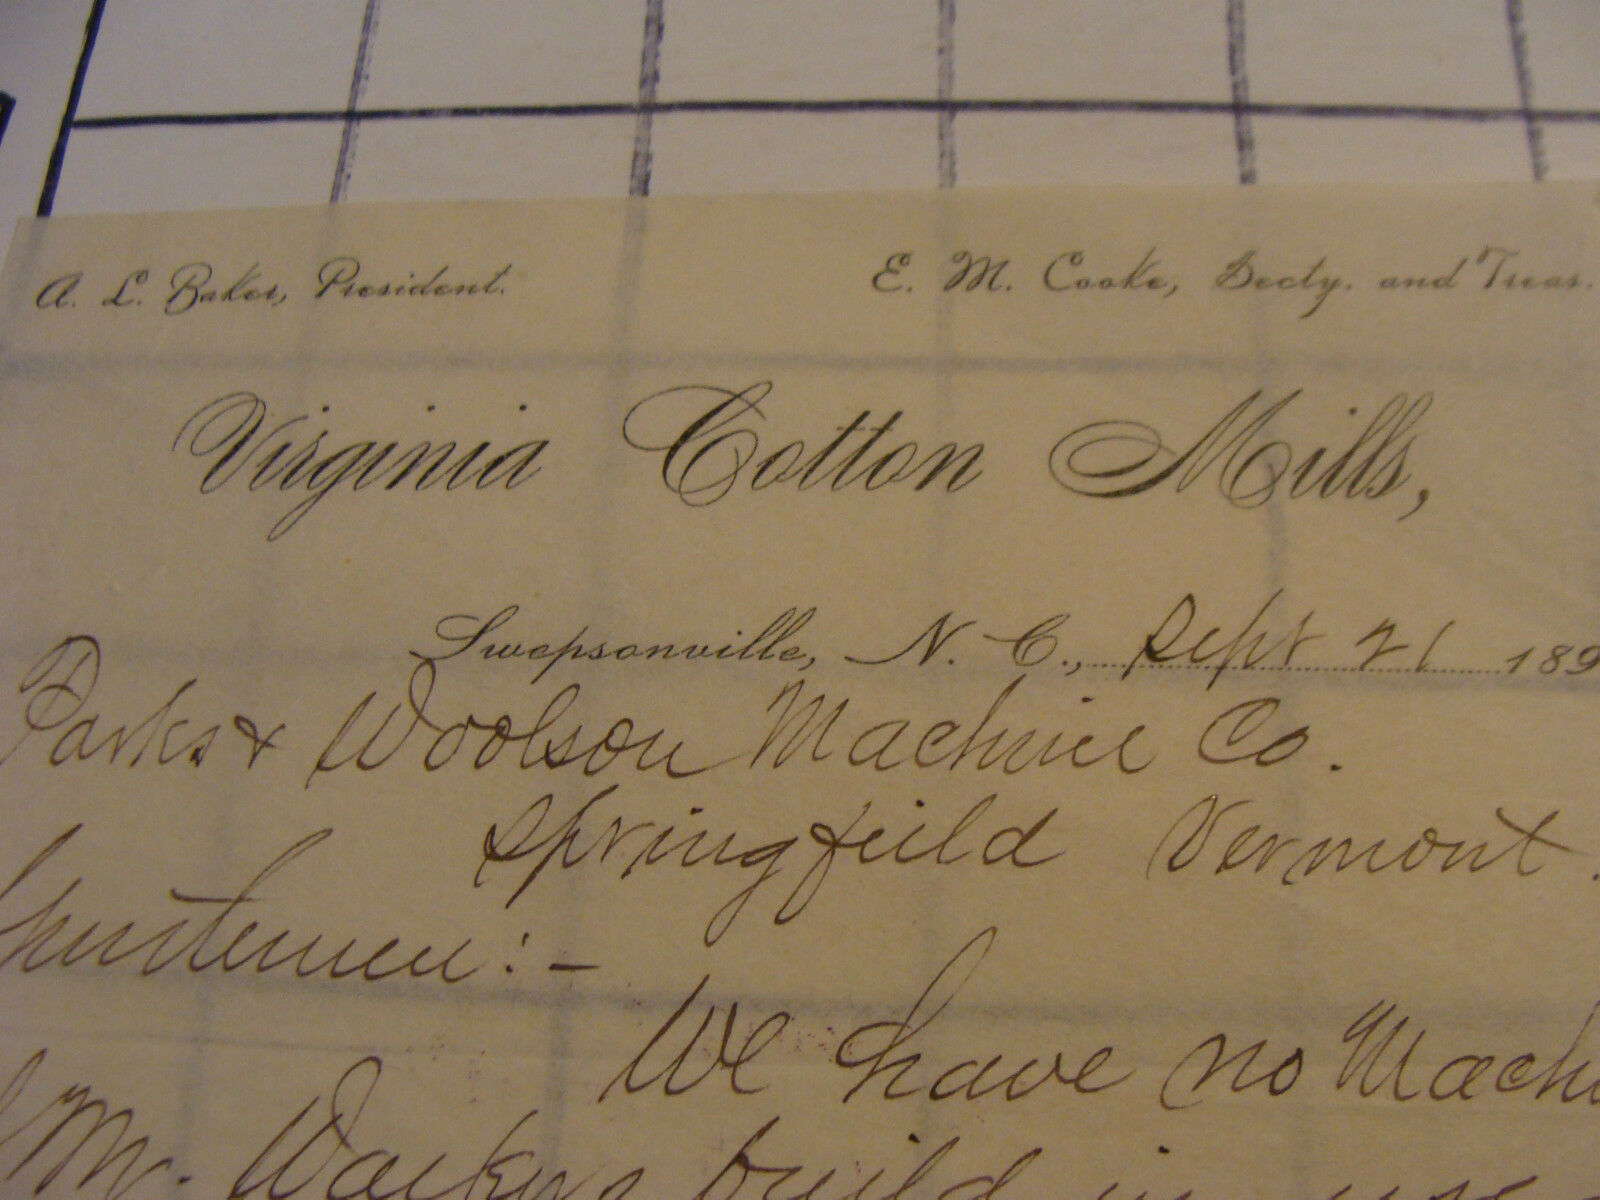 A. L. Baker, President. E. M. Cooke, Secty. and Treas.
Virginia Cotton Mills,
Swepsonville, N. C., Sept 21 189
Parks & Woolson Machine Co.
Springfield Vermont.
Gentlemen:-
We have no Machi
Mr. build in use